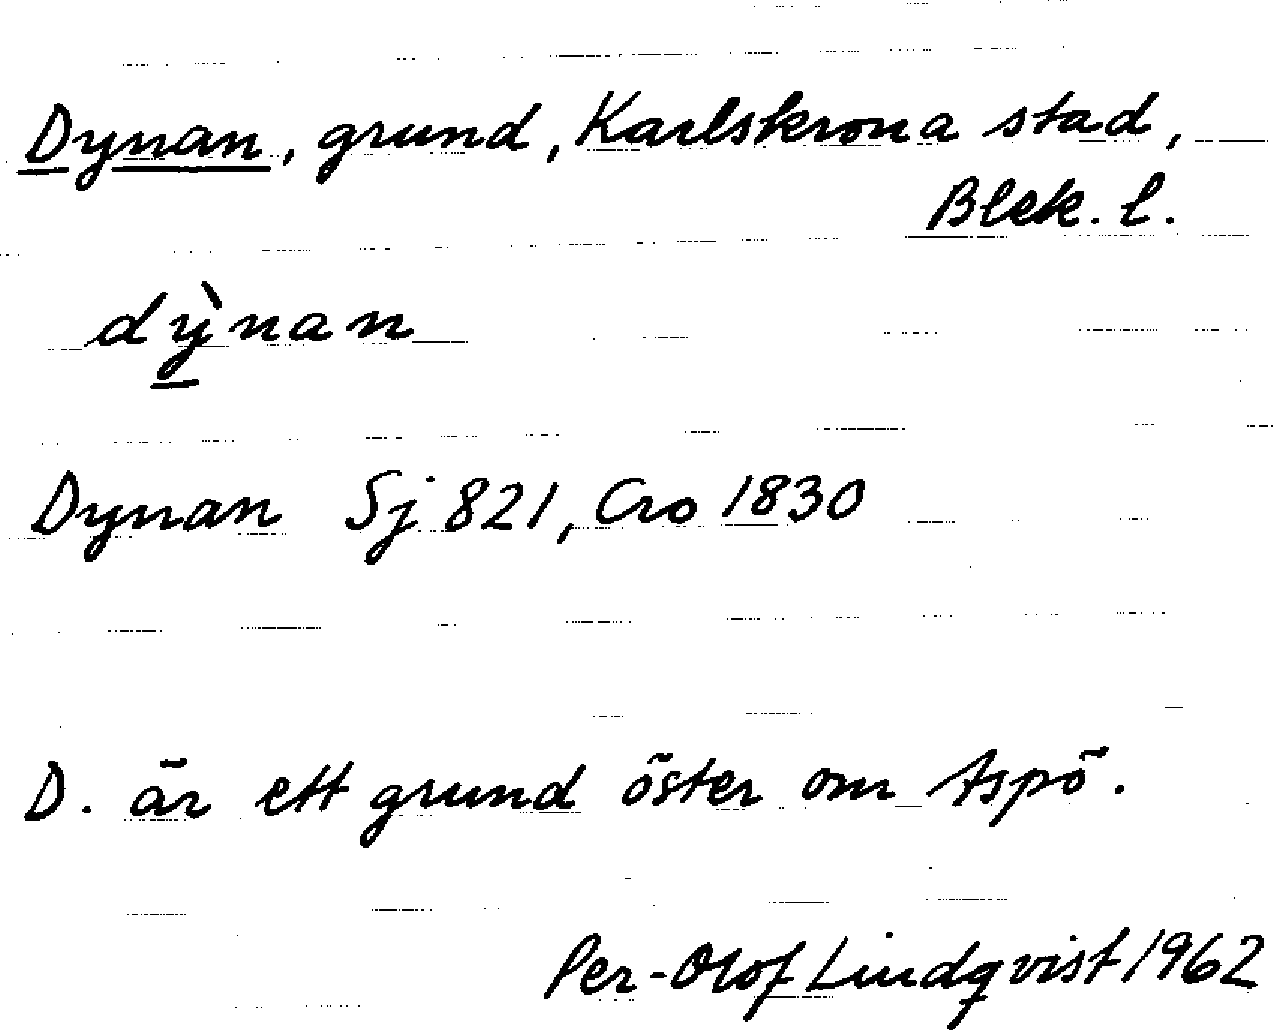 Dynan, grund, Karlskrona stad,
Blek. l.
dỳ̱nan
Dynan Sj 821, Cro 1830
D. är ett grund öster om Aspö.
Per-Olof Lindqvist 1962